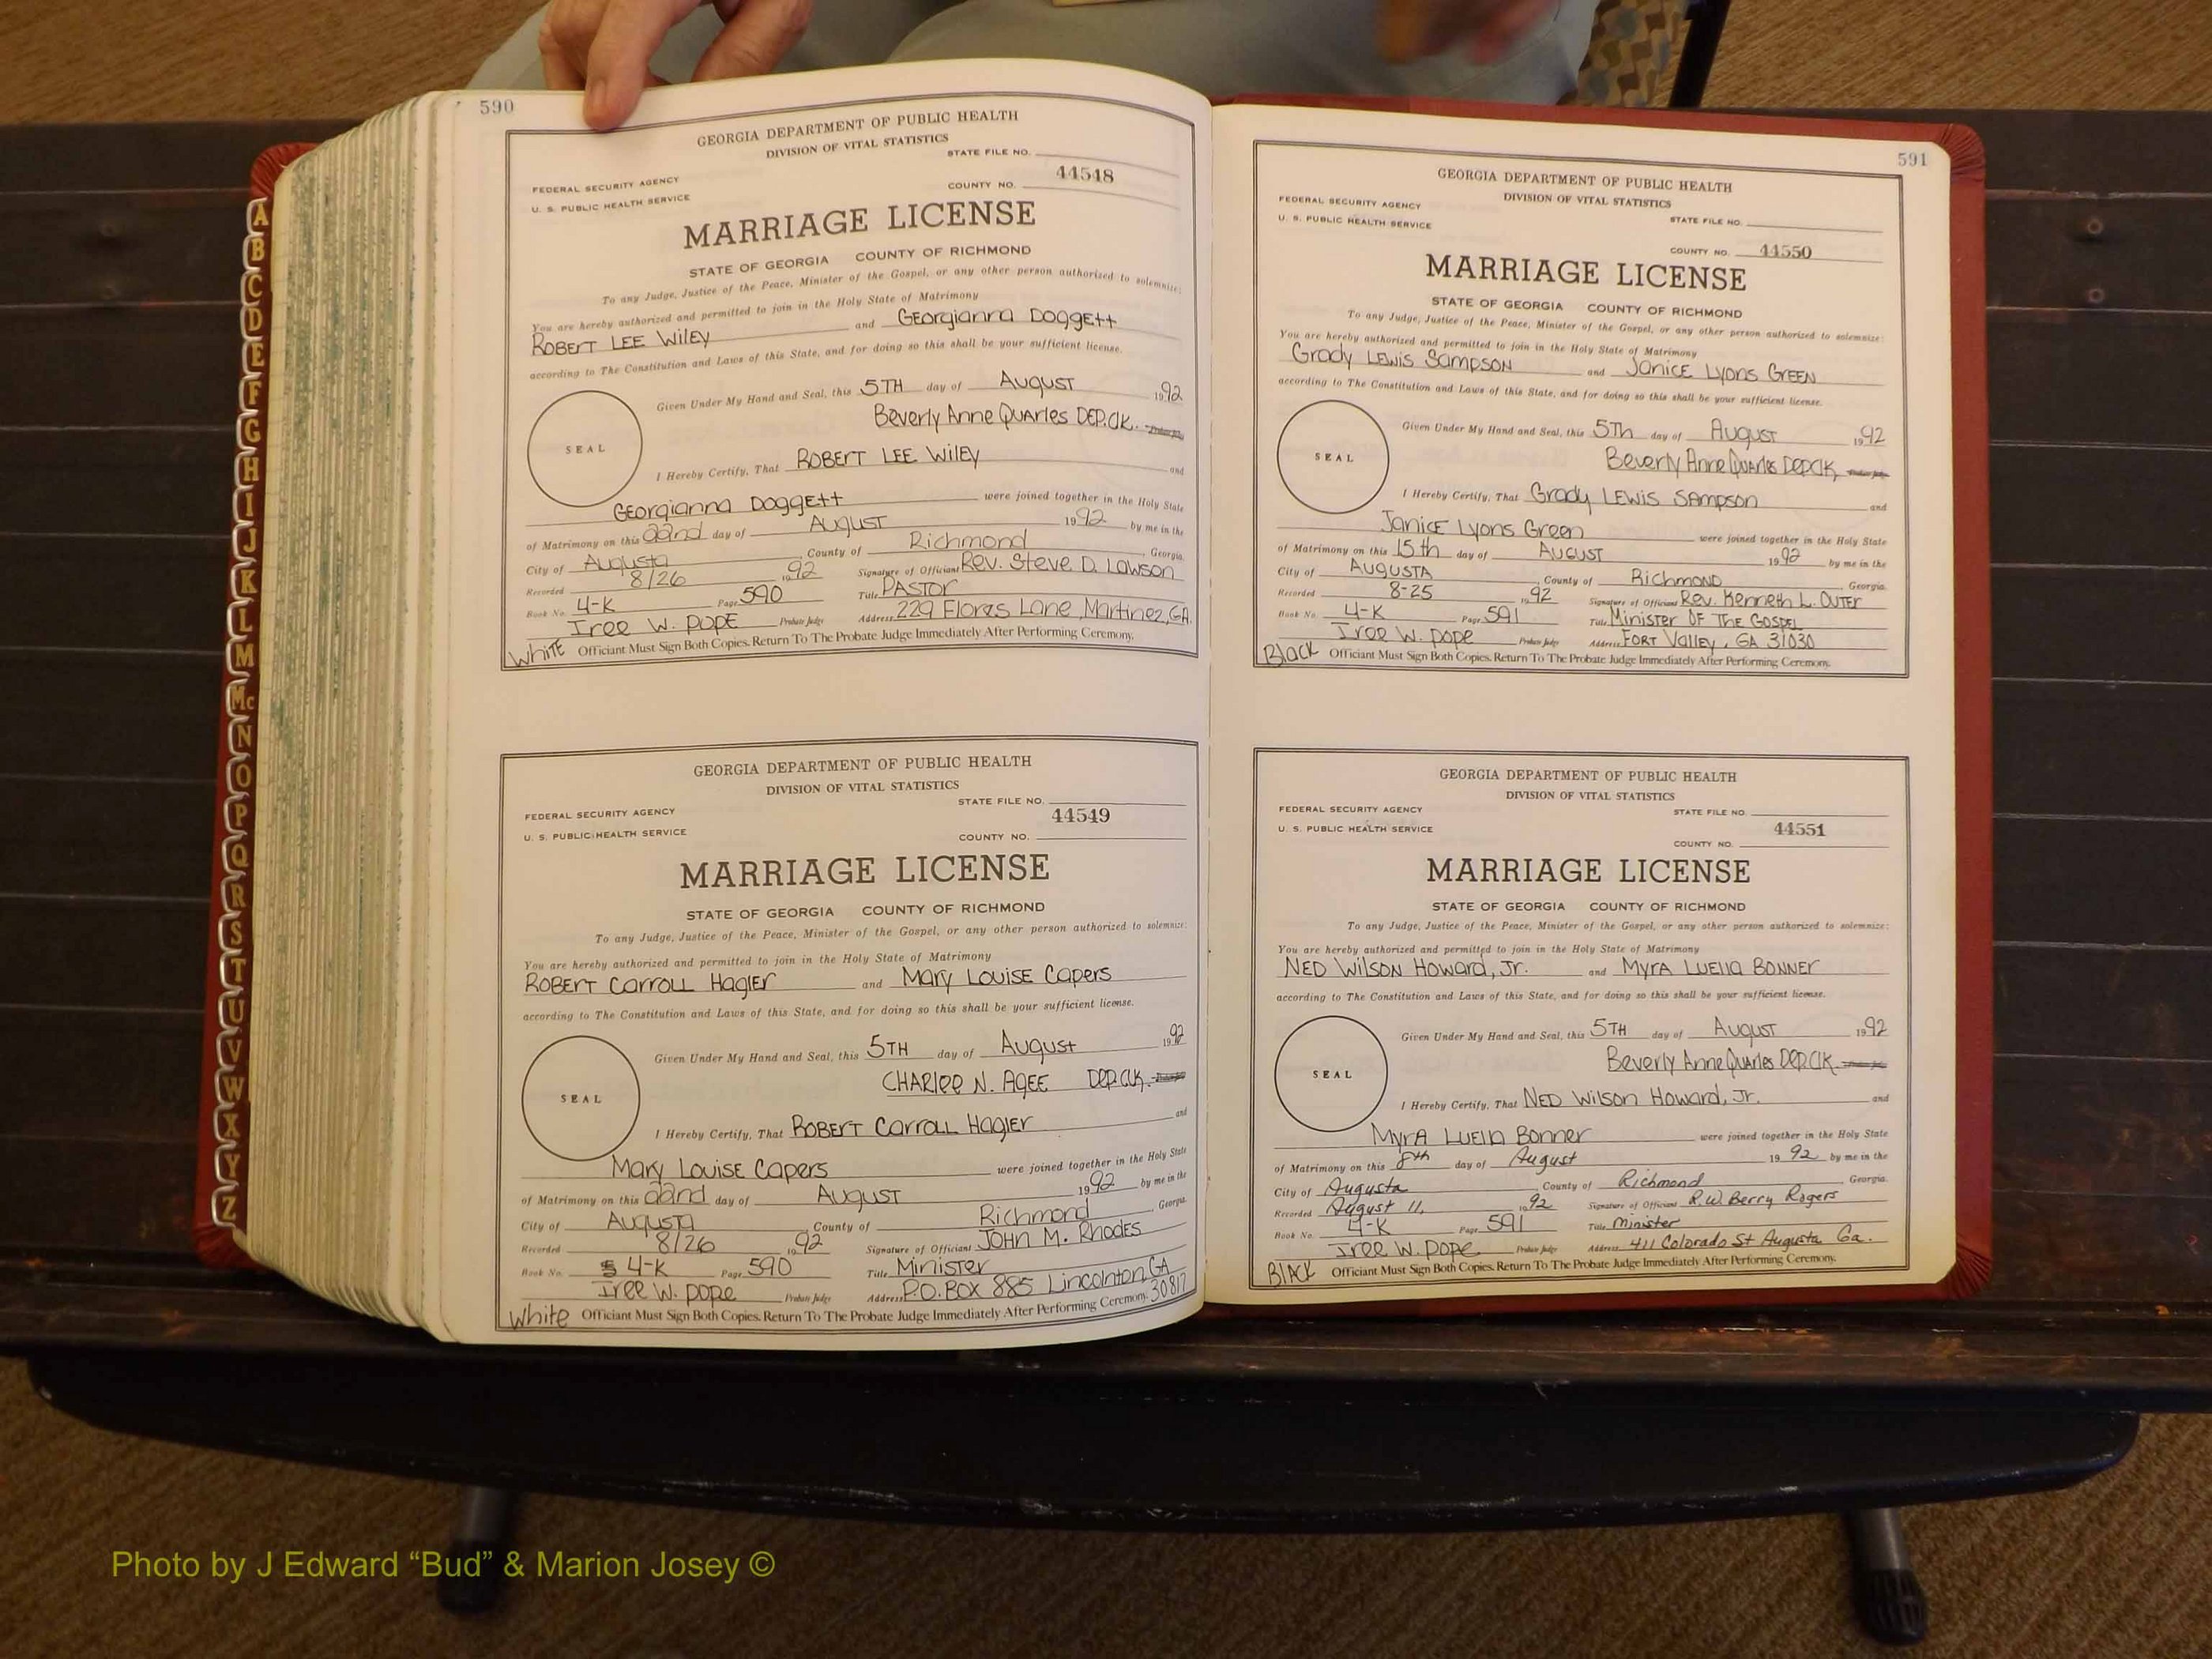 590
GEORGIA DEPARTMENT OF PUBLIC HEALTH
DIVISION OF VITAL STATISTICS
STATE FILE NO.
FEDERAL SECURITY AGENCY
44548
COUNTY NO.
U. S. PUBLIC HEALTH SERVICE
MARRIAGE LICENSE
STATE OF GEORGIA COUNTY OF RICHMOND
To any Judge, Justice of the Peace, Minister of the Gospel, or any other person authorized to solemnize:
You are hereby authorized and permitted to join in the Holy State of Matrimony
ROBERT LEE WilEY and GEorgianna DoggEtt
according to The Constitution and Laws of this State, and for doing so this shall be your sufficient license.
Given Under My Hand and Seal, this 5TH day of August 1992
Beverly Anne QuarlEs DEP.Clk.
SEAL
I Hereby Certify, That ROBERT LEE WilEY and
GEorgianna DoggEtt were joined together in the Holy State
of Matrimony on this 22nd day of August 1992 by me in the
City of Augusta, County of Richmond, Georgia.
Recorded 8/26 1992 Signature of Officiant Rev. Steve D. Lawson
Book No. 4-K Page 590 Title PASTOR
Iree W. POPE Probate Judge Address 229 Flores Lane, Martinez, GA.
WhitE Officiant Must Sign Both Copies. Return To The Probate Judge Immediately After Performing Ceremony.
GEORGIA DEPARTMENT OF PUBLIC HEALTH
DIVISION OF VITAL STATISTICS
STATE FILE NO.
FEDERAL SECURITY AGENCY
44549
U. S. PUBLIC HEALTH SERVICE
COUNTY NO.
MARRIAGE LICENSE
STATE OF GEORGIA COUNTY OF RICHMOND
To any Judge, Justice of the Peace, Minister of the Gospel, or any other person authorized to solemnize:
You are hereby authorized and permitted to join in the Holy State of Matrimony
ROBERT Carroll HaglEr and Mary LouisE CapErs
according to The Constitution and Laws of this State, and for doing so this shall be your sufficient license.
Given Under My Hand and Seal, this 5TH day of August 1992
CHARlee N. AgEE DEP.Clk.
SEAL
I Hereby Certify, That ROBERT Carroll HaglEr and
Mary LouisE Capers were joined together in the Holy State
of Matrimony on this 22nd day of August 1992 by me in the
City of Augusta, County of Richmond, Georgia.
Recorded 8/26 1992 Signature of Officiant JOHn M. Rhodes
Book No. 4-K Page 590 Title Minister
Iree W. pope Probate Judge Address P.O. Box 885 Lincolnton, GA 30817
White Officiant Must Sign Both Copies. Return To The Probate Judge Immediately After Performing Ceremony.
591
GEORGIA DEPARTMENT OF PUBLIC HEALTH
DIVISION OF VITAL STATISTICS
FEDERAL SECURITY AGENCY
STATE FILE NO.
U. S. PUBLIC HEALTH SERVICE
COUNTY NO. 44550
MARRIAGE LICENSE
STATE OF GEORGIA COUNTY OF RICHMOND
To any Judge, Justice of the Peace, Minister of the Gospel, or any other person authorized to solemnize:
You are hereby authorized and permitted to join in the Holy State of Matrimony
Grady LEwis Sampson and JanicE Lyons GREEN
according to The Constitution and Laws of this State, and for doing so this shall be your sufficient license.
Given Under My Hand and Seal, this 5Th day of August 1992
Beverly Anne Quarles DEP.Clk.
SEAL
I Hereby Certify, That Grady LEWis SAmpson and
JanicE Lyons Green were joined together in the Holy State
of Matrimony on this 15th day of AUGUST 1992 by me in the
City of AUGUSTA, County of Richmond, Georgia.
Recorded 8-25 1992 Signature of Officiant Rev. Kenneth L. OUTEr
Book No. 4-K Page 591 Title Minister OF The GOSPEL
Iree W. pope Probate Judge Address FORT Valley, GA 31030
Black Officiant Must Sign Both Copies. Return To The Probate Judge Immediately After Performing Ceremony.
GEORGIA DEPARTMENT OF PUBLIC HEALTH
DIVISION OF VITAL STATISTICS
FEDERAL SECURITY AGENCY
STATE FILE NO.
U. S. PUBLIC HEALTH SERVICE
44551
COUNTY NO.
MARRIAGE LICENSE
STATE OF GEORGIA COUNTY OF RICHMOND
To any Judge, Justice of the Peace, Minister of the Gospel, or any other person authorized to solemnize:
You are hereby authorized and permitted to join in the Holy State of Matrimony
NED Wilson Howard, Jr. and MyrA LuElla BONNER
according to The Constitution and Laws of this State, and for doing so this shall be your sufficient license.
Given Under My Hand and Seal, this 5TH day of August 1992
Beverly Anne Quarles DEP.Clk.
SEAL
I Hereby Certify, That NED Wilson Howard, Jr. and
MyrA LuElla Bonner were joined together in the Holy State
of Matrimony on this 8th day of August 1992 by me in the
City of Augusta, County of Richmond, Georgia.
Recorded August 11, 1992 Signature of Officiant R.W. Berry Rogers
Book No. 4-K Page 591 Title Minister
Iree W. pope Probate Judge Address 411 Colorado St Augusta Ga.
BlACK Officiant Must Sign Both Copies. Return To The Probate Judge Immediately After Performing Ceremony.
A
B
C
D
E
F
G
H
I
J
K
L
M
Mc
N
O
P
Q
R
S
T
U
V
W
X
Y
Z
Photo by J Edward “Bud” & Marion Josey ©